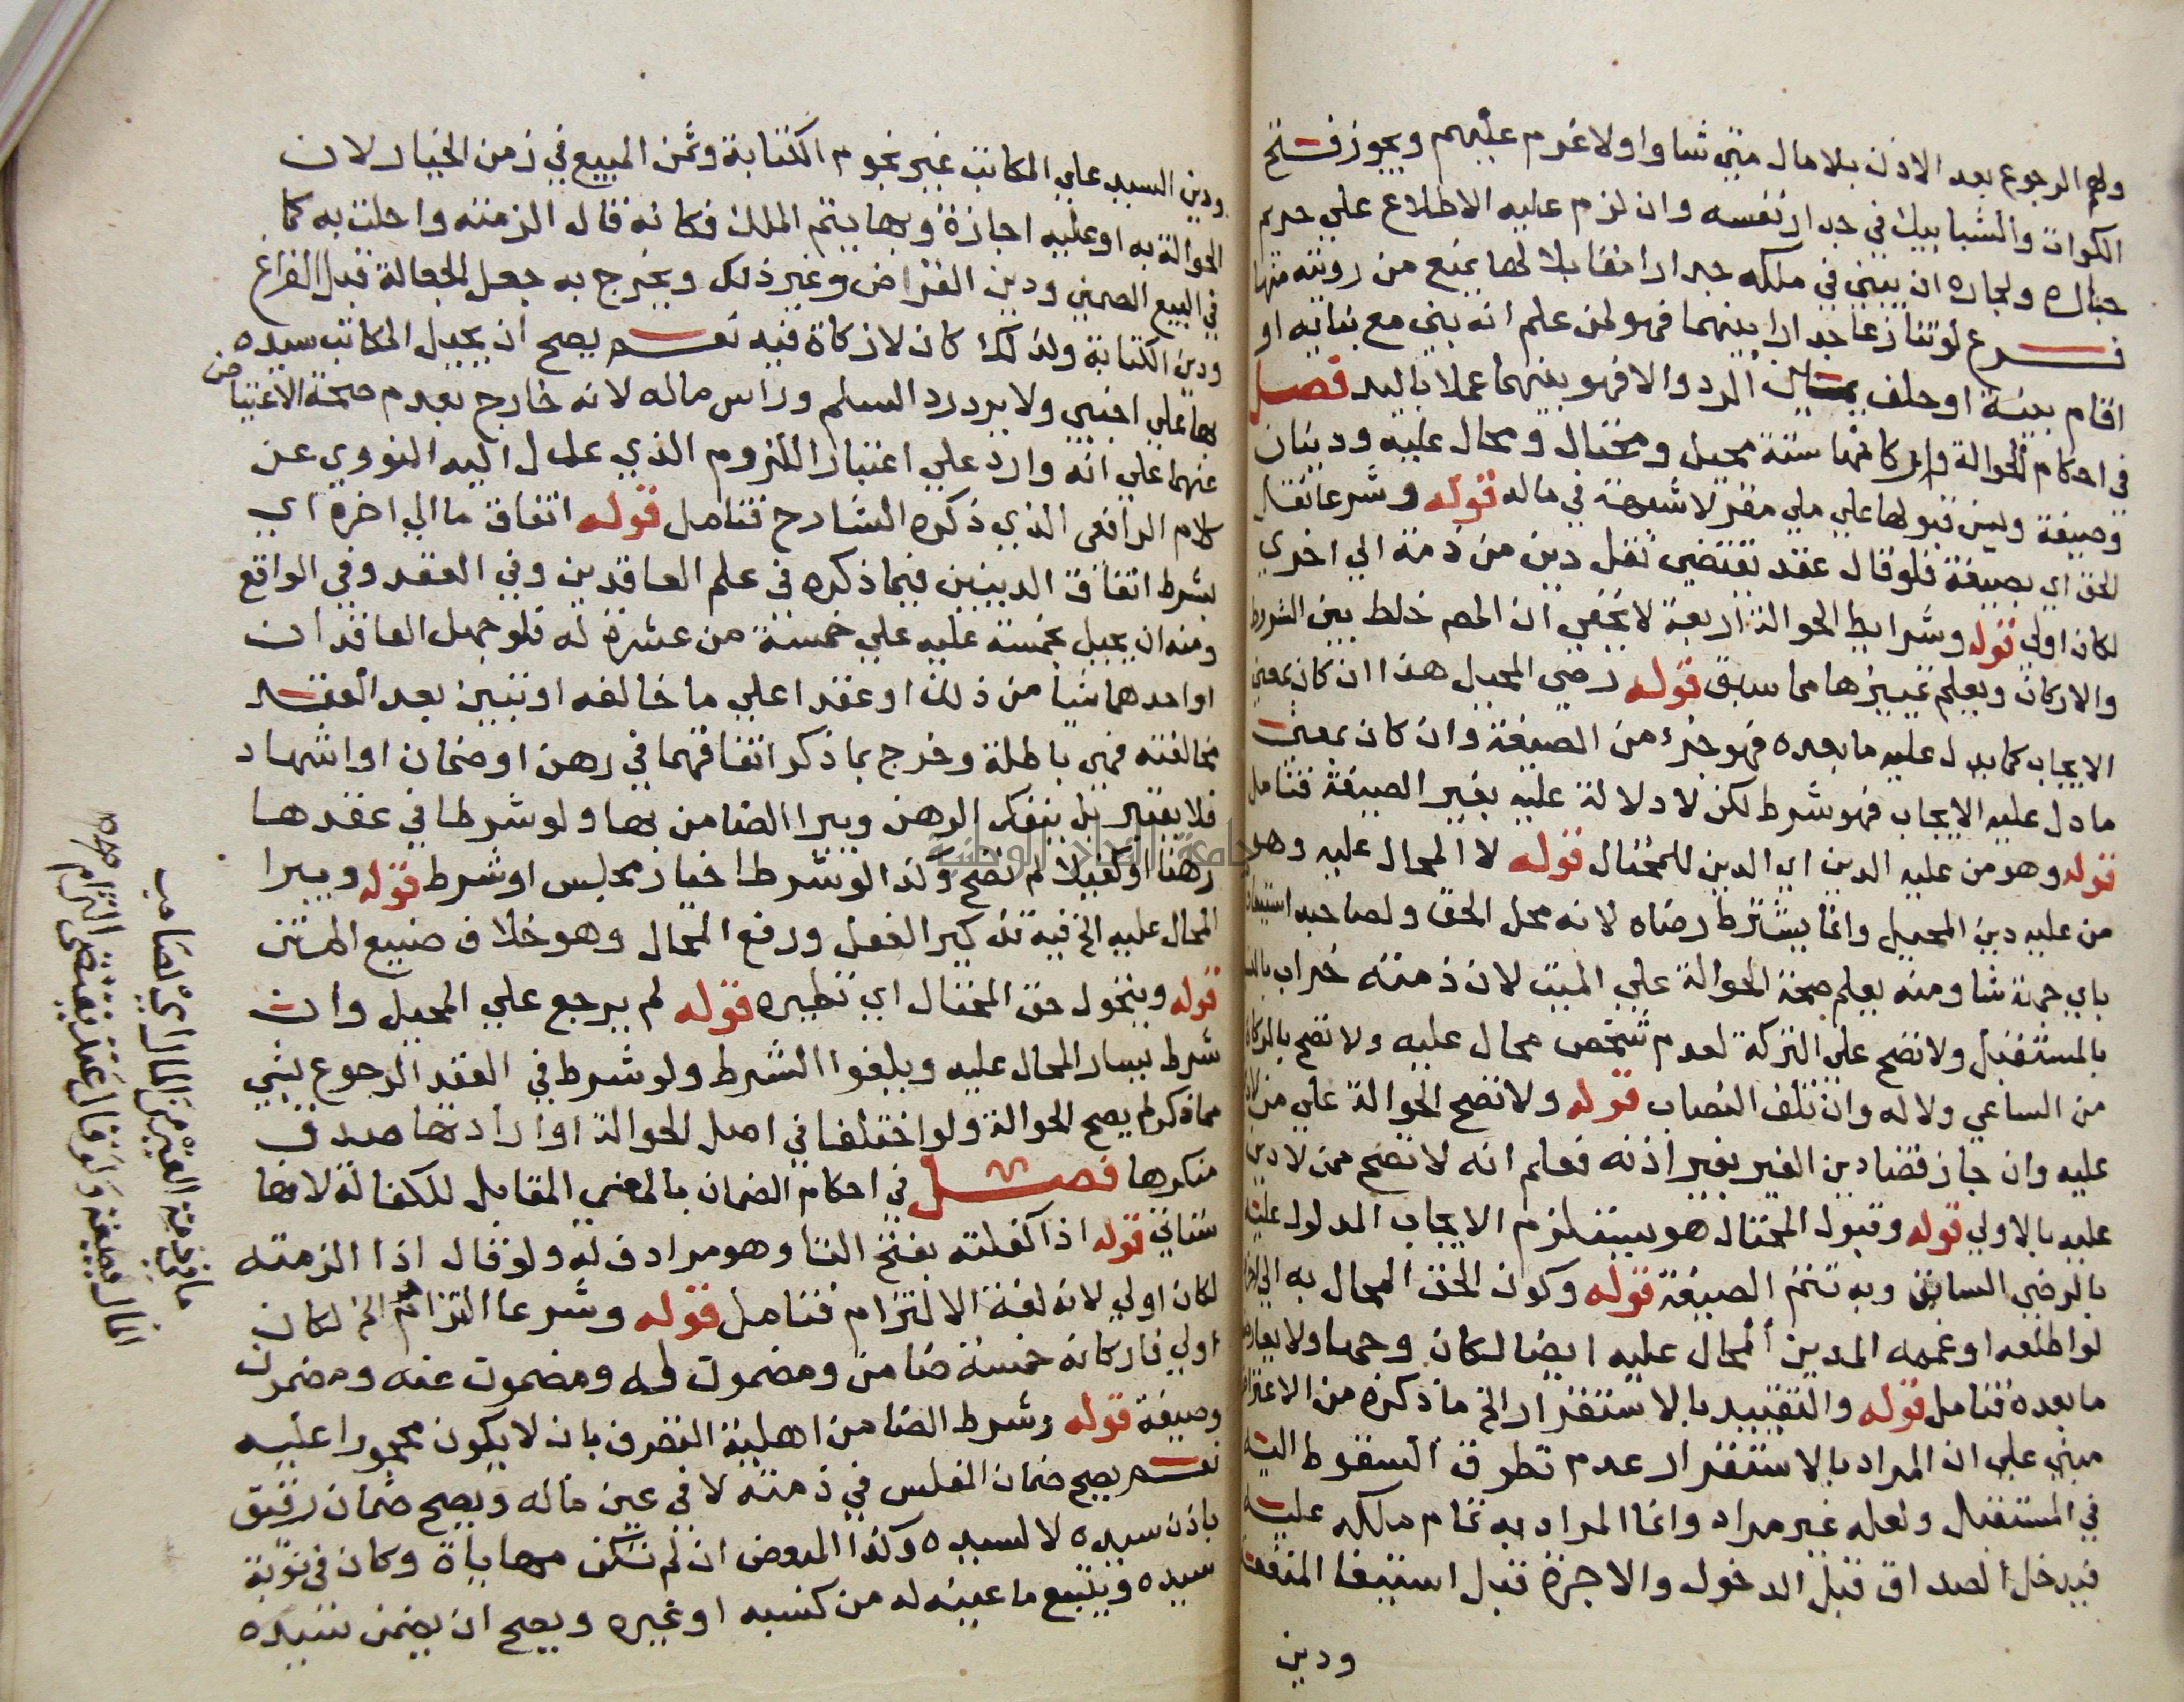 ولهم الرجوع بعد الاذن بلا مال متي شاوا ولا غرم عليهم ويجوز فتح
الكوات والشبابيك في جدار نفسه وان لزم عليه الاطلاع علي حريم
جاره ولجاره ان يبني في ملكه جدارا مقابلا لها يمنع من رويته منها
فرع لو تنازعا جدارا بينهما فهو لمن علم انه بني مع بنايه او
اقام بينة او حلف الرد والا فهو بينهما عملا باليد فصل
في احكام الحوالة واركانها ستة محيل ومحتال ومحال عليه ودينان
وصيغة ويسن قبولها علي ملي مقر لا شبهة في ماله قوله وشرعا نقل
الحق اي بصيغة فلو قال عقد يقتضي نقل دين من ذمة الي اخري
لكان اولي قوله وشرايط الحوالة اربعة لا يخفي ان المص خلط بين الشروط
والاركان ويعلم تمييزها مما سبق قوله رضي المحيل هذا ان كان بمعني
الايجاب كما يدل عليه ما بعده فهو جزء من الصيغة وان كان بمعني
ما دل عليه الايجاب فهو شرط لكن لا دلالة عليه بغير الصيغة فتامل
قوله وهو من عليه الدين اي الدين للمحتال قوله لا المحال عليه وهو
من عليه دين المحيل وانما يشترط رضاه لانه محل الحق ولصاحبه استيفاه
باي جهة شا ومنه يعلم صحة الحوالة علي الميت لان ذمته خراب بالنسبة
بالمستقبل ولا تصح علي التركة لعدم شخص محال عليه ولا تصح بالزكاة
من الساعي ولا له وان تلف النصاب قوله ولا تصح الحوالة علي من لا دين
عليه وان جاز قضا دين الغير بغير اذنه فعلم انه لا تصح ممن لا دين
عليه بالاولي قوله وقبول المحتال هو يستلزم الايجاب المدلول عليه
بالرضي السابق وبه تتم الصيغة قوله وكون الحق المحال به الي اخره
لو اطلقه او عممه المدين المحال عليه ايضا لكان وجها ولا يعارضه
ما بعده فتامل قوله والتقييد بالاستقرار الخ ما ذكره من الاعتراض
مبني علي ان المراد بالاستقرار عدم تطرق السقوط اليه
في المستقبل ولعله غير مراد وانما المراد به تمام ملكه عليه
فيدخل الصداق قبل الدخول والاجرة قبل استيفا المنفعة
ودين
ودين السيد علي المكاتب غير نجوم الكتابة وثمن المبيع في زمن الخيار لان
الحوالة به او عليه اجازة وبها يتم الملك فكانه قال الزمته واحلت به كما
في البيع الضمني ودين القراض وغير ذلك ويخرج به جعل الجعالة قبل الفراغ
ودين الكتابة ولذلك كان لا زكاة فيه نعم يصح ان يحيل المكاتب سيده
بها علي اجنبي ولا يرد رد السلم وراس ماله لانه خارج بعدم صحة الاعتياض
عنهما علي انه وارد علي اعتبار اللزوم الذي عدل اليه النووي عن
كلام الرافعي الذي ذكره الشارح فتامل قوله اتفاق ما الي اخره اي
بشرط اتفاق الدينين فيما ذكره في علم العاقدين وفي العقد وفي الواقع
ومنه ان يحيل بخمسة عليه علي خمسة من عشرة له فلو جهل العاقدان
او احدهما شيا من ذلك او عقدا علي ما خالفه او تبين بعد العقد
مخالفته فهي باطلة وخرج بما ذكر اتفاقهما في رهن او ضمان او اشهاد
فلا يعتبر بل ينفك الرهن ويبرا الضامن بها ولو شرطا في عقدها
رهنا او كفيلا لم تصح وكذا لو شرط خيار مجلس او شرط قوله ويبرا
المحال عليه الخ فيه تذكير الفعل ورفع المحال وهو خلاف صنيع المتن
قوله ويتحول حق المحتال اي نظيره قوله لم يرجع علي المحيل وان
شرط يسار المحال عليه ويلغوا الشرط ولو شرط في العقد الرجوع بشي
مما ذكر لم يصح الحوالة ولو اختلفا في اصل الحوالة او ارادتها صدق
منكرها فصل في احكام الضمان بالمعني المقابل للكفالة لانها
ستاتي قوله اذا كفلته بفتح التا وهو مرادف له ولو قال اذا الزمته
لكان اولي لانه لغة الالتزام فتامل قوله وشرعا التزام الخ لكان
اولي فاركانه خمسة ضامن ومضمون له ومضمون عنه ومضمون
وصيغة قوله وشرط الضامن اهلية التصرف بان لا يكون محجورا عليه
نعم يصح ضمان المفلس في ذمته لا في عين ماله ويصح ضمان رقيق
باذن سيده لا لسيده وكذا المبعض ان لم تكن مهاياة وكان في نوبة
سيده ويتبع ما عينه له من كسبه او غيره ويصح ان يضمن سيده
المال وصيغة ولو قال عقد يقتضي التزام
ما في ذمة الغير من المال اي لصاحب